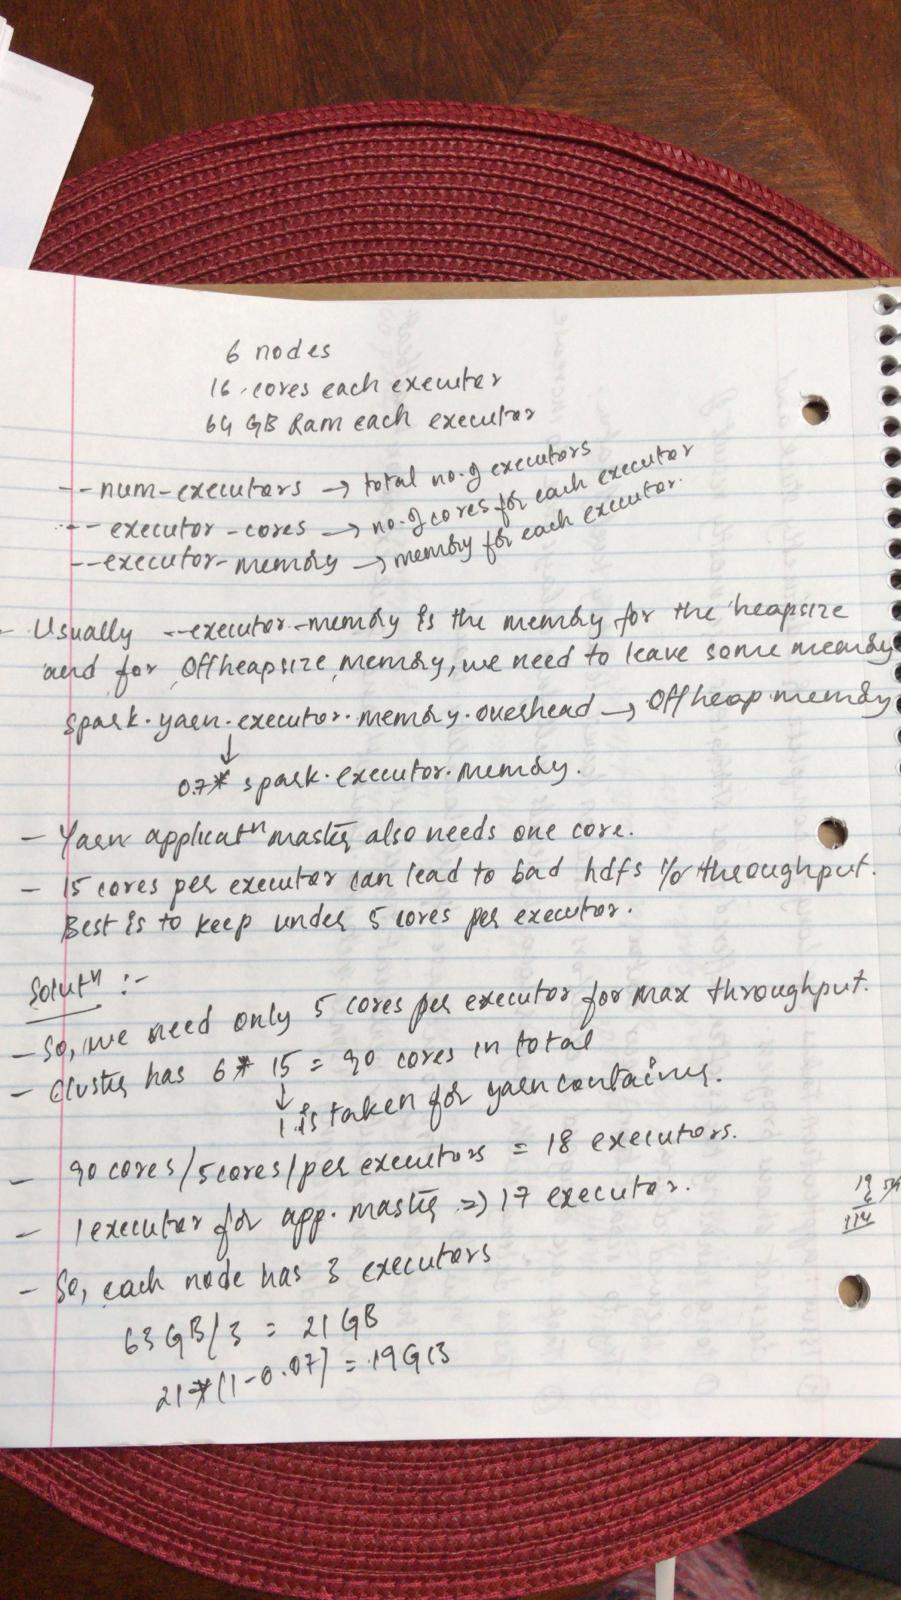 6 nodes
16 cores each executor
64 GB Ram each executor
-- num-executors → total no. of executors
-- executor-cores → no. of cores for each executor
--executor-memory → memory for each executor.
- Usually --executor-memory is the memory for the heapsize
and for Offheapsize memory, we need to leave some memory
spark.yarn.executor.memory.overhead → Offheap memory
↓
0.7* spark.executor.memory.
- Yarn applicatn master also needs one core.
- 15 cores per executor can lead to bad hdfs I/o throughput.
Best is to keep under 5 cores per executor.
Solutn :-
- So, we need only 5 cores per executor for max throughput.
- Cluster has 6 * 15 = 90 cores in total
↓
1 is taken for yarn containers.
- 90 cores/5cores/per executors = 18 executors.
- 1 executor for app. master => 17 executor.
- So, each node has 3 executors
63 GB/3 = 21 GB
21*(1-0.07) = 19GB
19
6
114